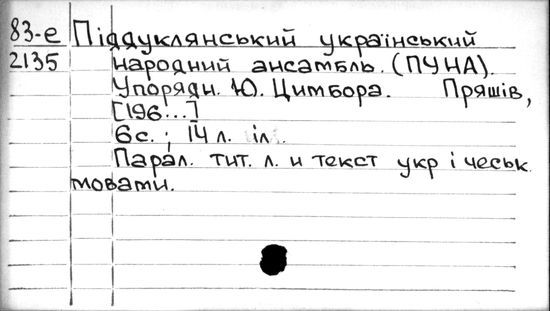 83-е Піддуклянський український
2135 народний ансамбль. (ПУНА).
Упорядн. Ю. Цимбора. Пряшів,
[196...]
6с.; 14 л. іл..
Парал. тит. л. и текст укр і чеськ
мовами.